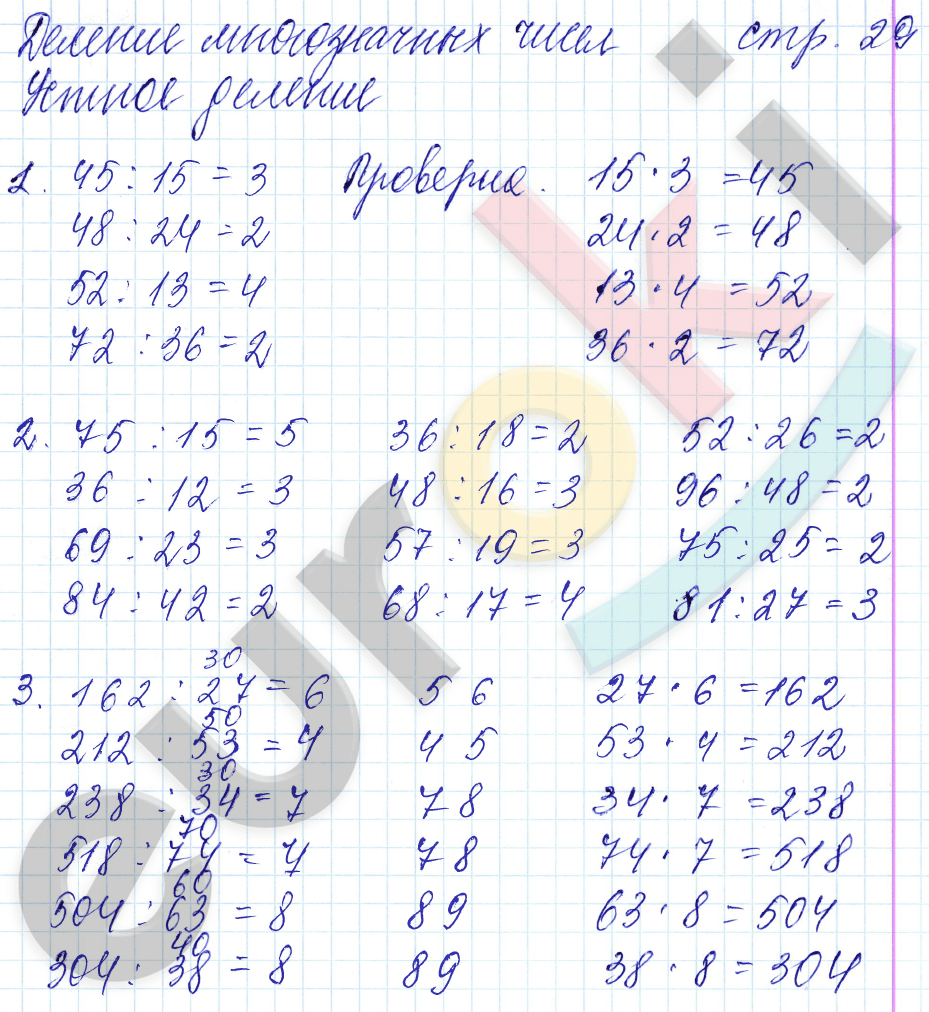 Деление многозначных чисел стр. 29
Устное деление
1. 45 : 15 = 3 Проверка. 15 · 3 = 45
48 : 24 = 2 24 · 2 = 48
52 : 13 = 4 13 · 4 = 52
72 : 36 = 2 36 · 2 = 72
2. 75 : 15 = 5 36 : 18 = 2 52 : 26 = 2
36 : 12 = 3 48 : 16 = 3 96 : 48 = 2
69 : 23 = 3 57 : 19 = 3 75 : 25 = 2
84 : 42 = 2 68 : 17 = 4 81 : 27 = 3
30
3. 162 : 27 = 6 5 6 27 · 6 = 162
50
212 : 53 = 4 4 5 53 · 4 = 212
30
238 : 34 = 7 7 8 34 · 7 = 238
70
518 : 74 = 7 7 8 74 · 7 = 518
60
504 : 63 = 8 8 9 63 · 8 = 504
40
304 : 38 = 8 8 9 38 · 8 = 304
euroki